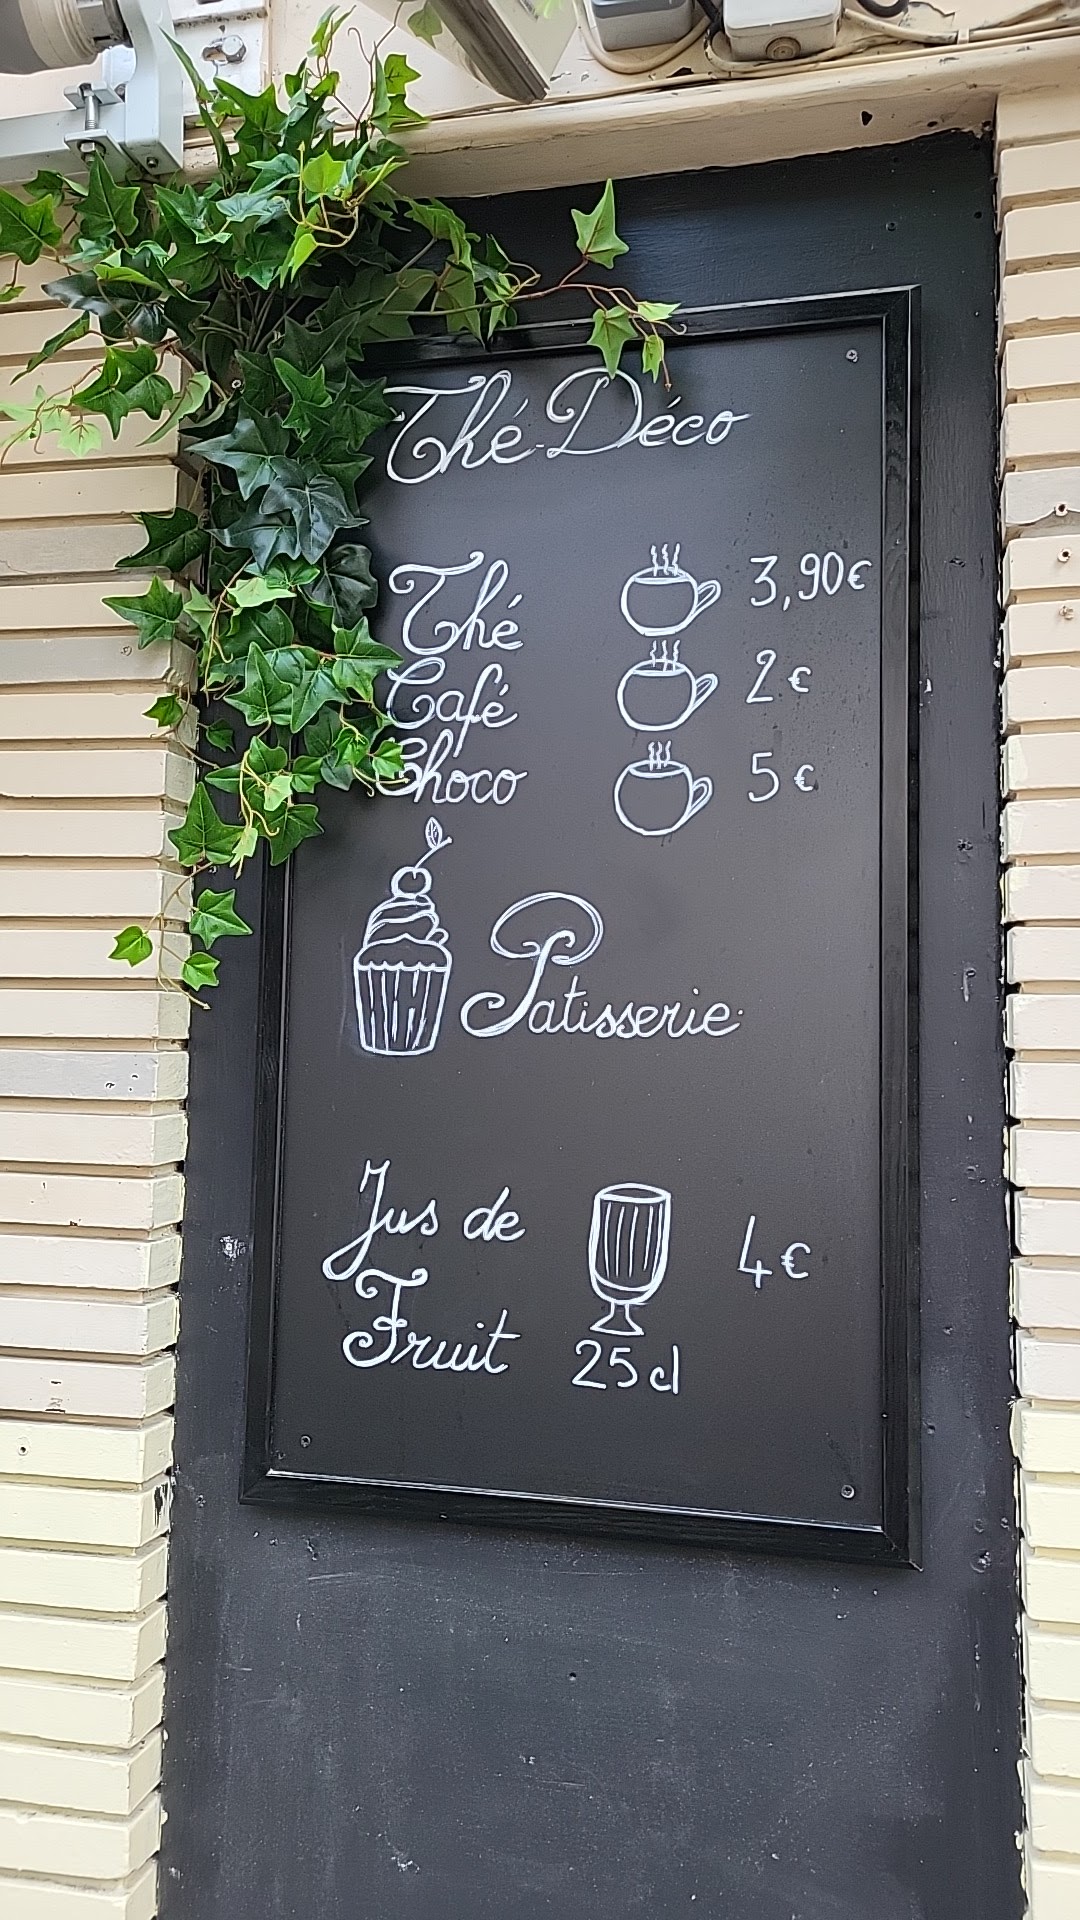 Thé-Déco
Thé 3,90€
Café 2€
Choco 5€
Patisserie
Jus de
Fruit 4€
25cl